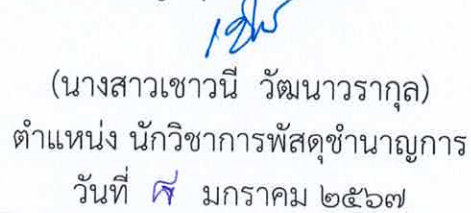 (นางสาวเชาวนี วัฒนาวรากุล)
ตำแหน่ง นักวิชาการพัสดุชำนาญการ
วันที่ ๘ มกราคม ๒๕๖๗